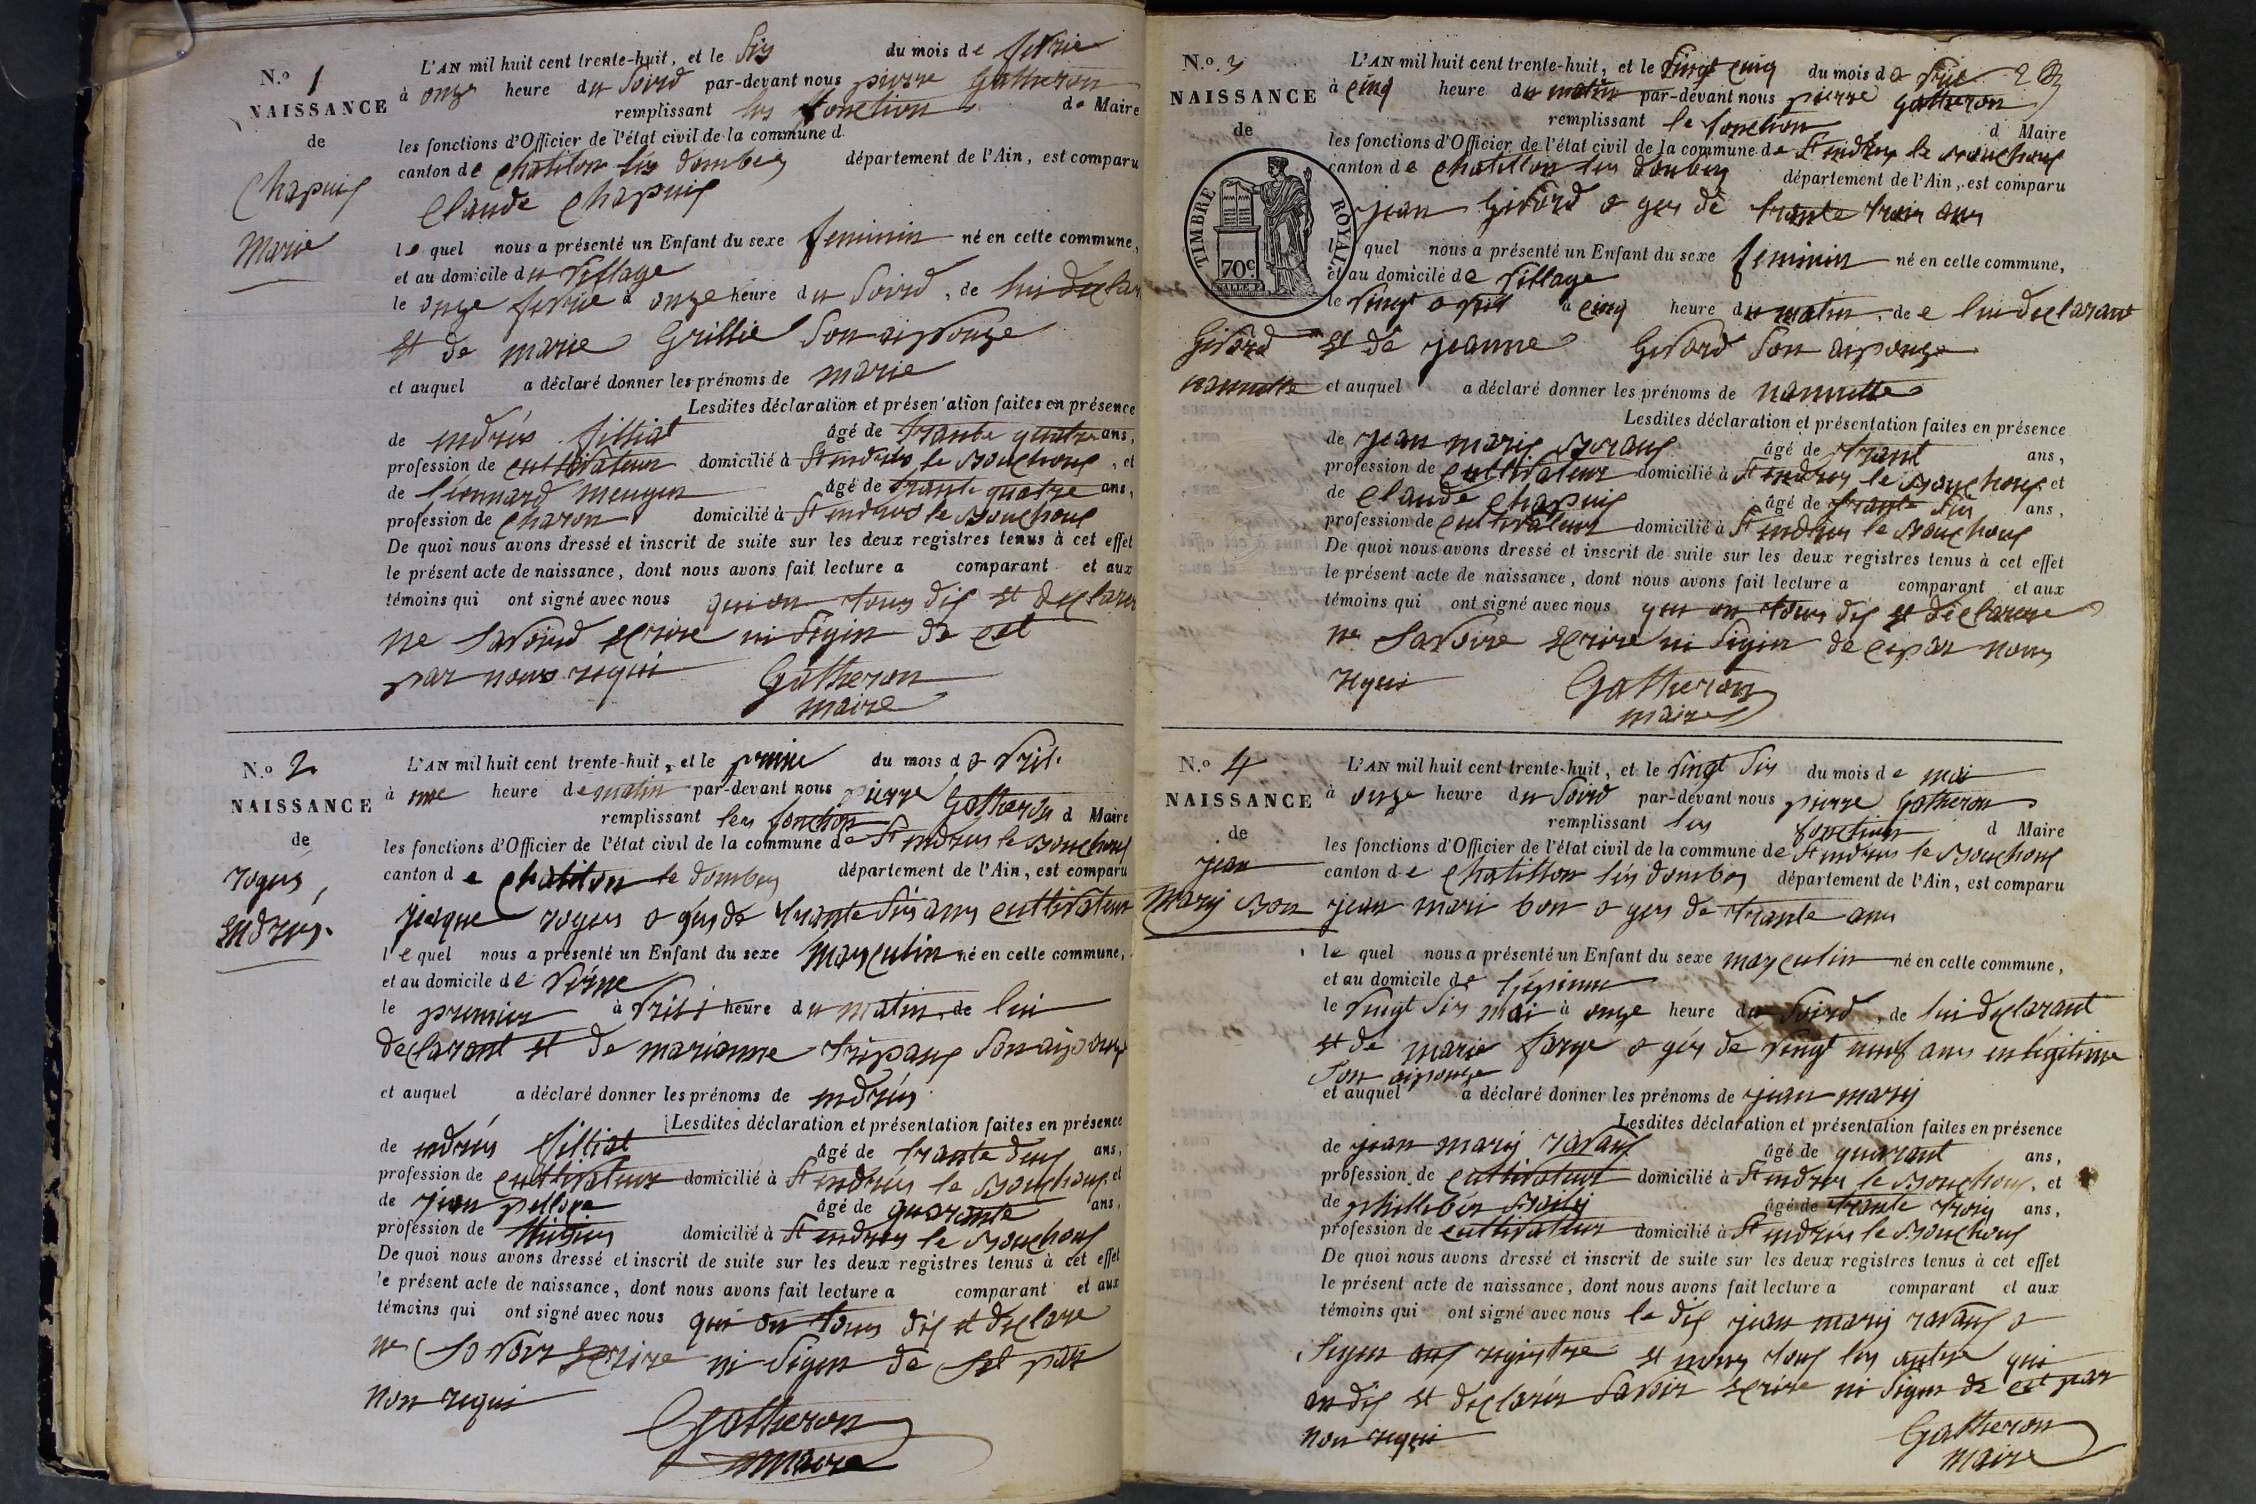 N.º 1
NAISSANCE
de
Chapuis
Marie
L'AN mil huit cent trente-huit, et le Sis du mois de fevrie
à onze heure du Soird par-devant nous pierre Gatheron
remplissant les fonction de Maire
les fonctions d'Officier de l'état civil de la commune d
canton de chatilon lés dombes département de l'Ain, est comparu
Claude Chapuis
le quel nous a présenté un Enfant du sexe feminin né en cette commune,
et au domicile du village
le onze fevrie à onze heure du Soird, de lui declar
et de marie Grillie Son aipouze
et auquel a déclaré donner les prénoms de marie
Lesdites déclaration et présentation faites en présence
de andrés filliat âgé de trante quatre ans,
profession de cultivateur domicilié à St andrés le Bouchoux, et
de léonnard mengin âgé de trante quatre ans,
profession de charon domicilié à St andres le Bouchoux
De quoi nous avons dressé et inscrit de suite sur les deux registres tenus à cet effet
le présent acte de naissance, dont nous avons fait lecture a comparant et aux
témoins qui ont signé avec nous qui on tous dis et declarer
ne Savoird ecrire ni Signé de cet
par nous requi Gatheron
maire
N.º 2.
NAISSANCE
de
royer
andrés.
L'AN mil huit cent trente-huit, et le premie du mois d avril.
à une heure de matin par-devant nous pierre Gatheron
remplissant les fonction d Maire
les fonctions d'Officier de l'état civil de la commune de St andres le Bouchoux
canton d e chatilon le dombes département de l'Ain, est comparu
jacque royer ager de trante sis ans cultivateur
le quel nous a présenté un Enfant du sexe masculin né en cette commune,
et au domicile de
le premier à heure du matin, de lui
declarant et de marianne Son aipouze
et auquel a déclaré donner les prénoms de andrés
Lesdites déclaration et présentation faites en présence
de andrés filliat âgé de trante deux ans,
profession de cultivateur domicilié à St andrés le Bouchoux, et
de jean âgé de quarante ans,
profession de domicilié à St andres le Bouchoux
De quoi nous avons dressé et inscrit de suite sur les deux registres tenus à cet effet
le présent acte de naissance, dont nous avons fait lecture a comparant et aux
témoins qui ont signé avec nous qui on tous dis et declare
ne Savoir ecrire ni Signer de set par
non requi
Gatheron
maire
N.º 3
NAISSANCE
de
TIMBRE ROYAL
70c
Givord
nannette
L'AN mil huit cent trente-huit, et le vingt cinq du mois d avril
à cinq heure du matin par-devant nous pierre Gatheron
remplissant le fonction d Maire
les fonctions d'Officier de l'état civil de la commune de St andres le Bouchoux
canton de chatillon les dombes département de l'Ain, est comparu
jean Givord ager de trante trois ans
le quel nous a présenté un Enfant du sexe feminin né en cette commune,
et au domicile de village
le vingt avril à cinq heure du matin, de e lui declarant
et de jeanne Givord Son aipouze
et auquel a déclaré donner les prénoms de nannette
Lesdites déclaration et présentation faites en présence
de jean marie âgé de trant ans,
profession de cultivateur domicilié à St andres le Bouchoux et
de Claude Chapuis âgé de trante Sis ans,
profession de cultivateur domicilié à St andres le Bouchoux
De quoi nous avons dressé et inscrit de suite sur les deux registres tenus à cet effet
le présent acte de naissance, dont nous avons fait lecture a comparant et aux
témoins qui ont signé avec nous qui on tous dis et déclarere
ne Savoire ecrire ni Signer de ce par nous
requis Gatheron
maire
N.º 4
NAISSANCE
de
jean
Mary Bon
L'AN mil huit cent trente-huit, et le vingt Sis du mois de mai
à onze heure du Soird par-devant nous pierre Gatheron
remplissant les fonction d Maire
les fonctions d'Officier de l'état civil de la commune de St andres le Bouchoux
canton d e chatillon lés dombes département de l'Ain, est comparu
jean mari bon ager de trante ans
le quel nous a présenté un Enfant du sexe masculin né en cette commune,
et au domicile de lépinne
le vingt Sis mai à onze heure du Soird, de lui declarant
et de marie farge agér de vingt neuf ans en légitime
Son aipouze
et auquel a déclaré donner les prénoms de jean mary
Lesdites déclaration et présentation faites en présence
de jean mary ravaux âgé de quarant ans,
profession de cultivateur domicilié à St andres le Bouchoux, et
de phillebér âgé de trante trois ans,
profession de cultivateur domicilié à St andrés le Bouchoux
De quoi nous avons dressé et inscrit de suite sur les deux registres tenus à cet effet
le présent acte de naissance, dont nous avons fait lecture a comparant et aux
témoins qui ont signé avec nous le dis jean mary ravaux a
Signer aux registre et nous tous les autre qui
on dis et declarér Savoir ecrire ni Signer de cet par
non requi
Gatheron
maire